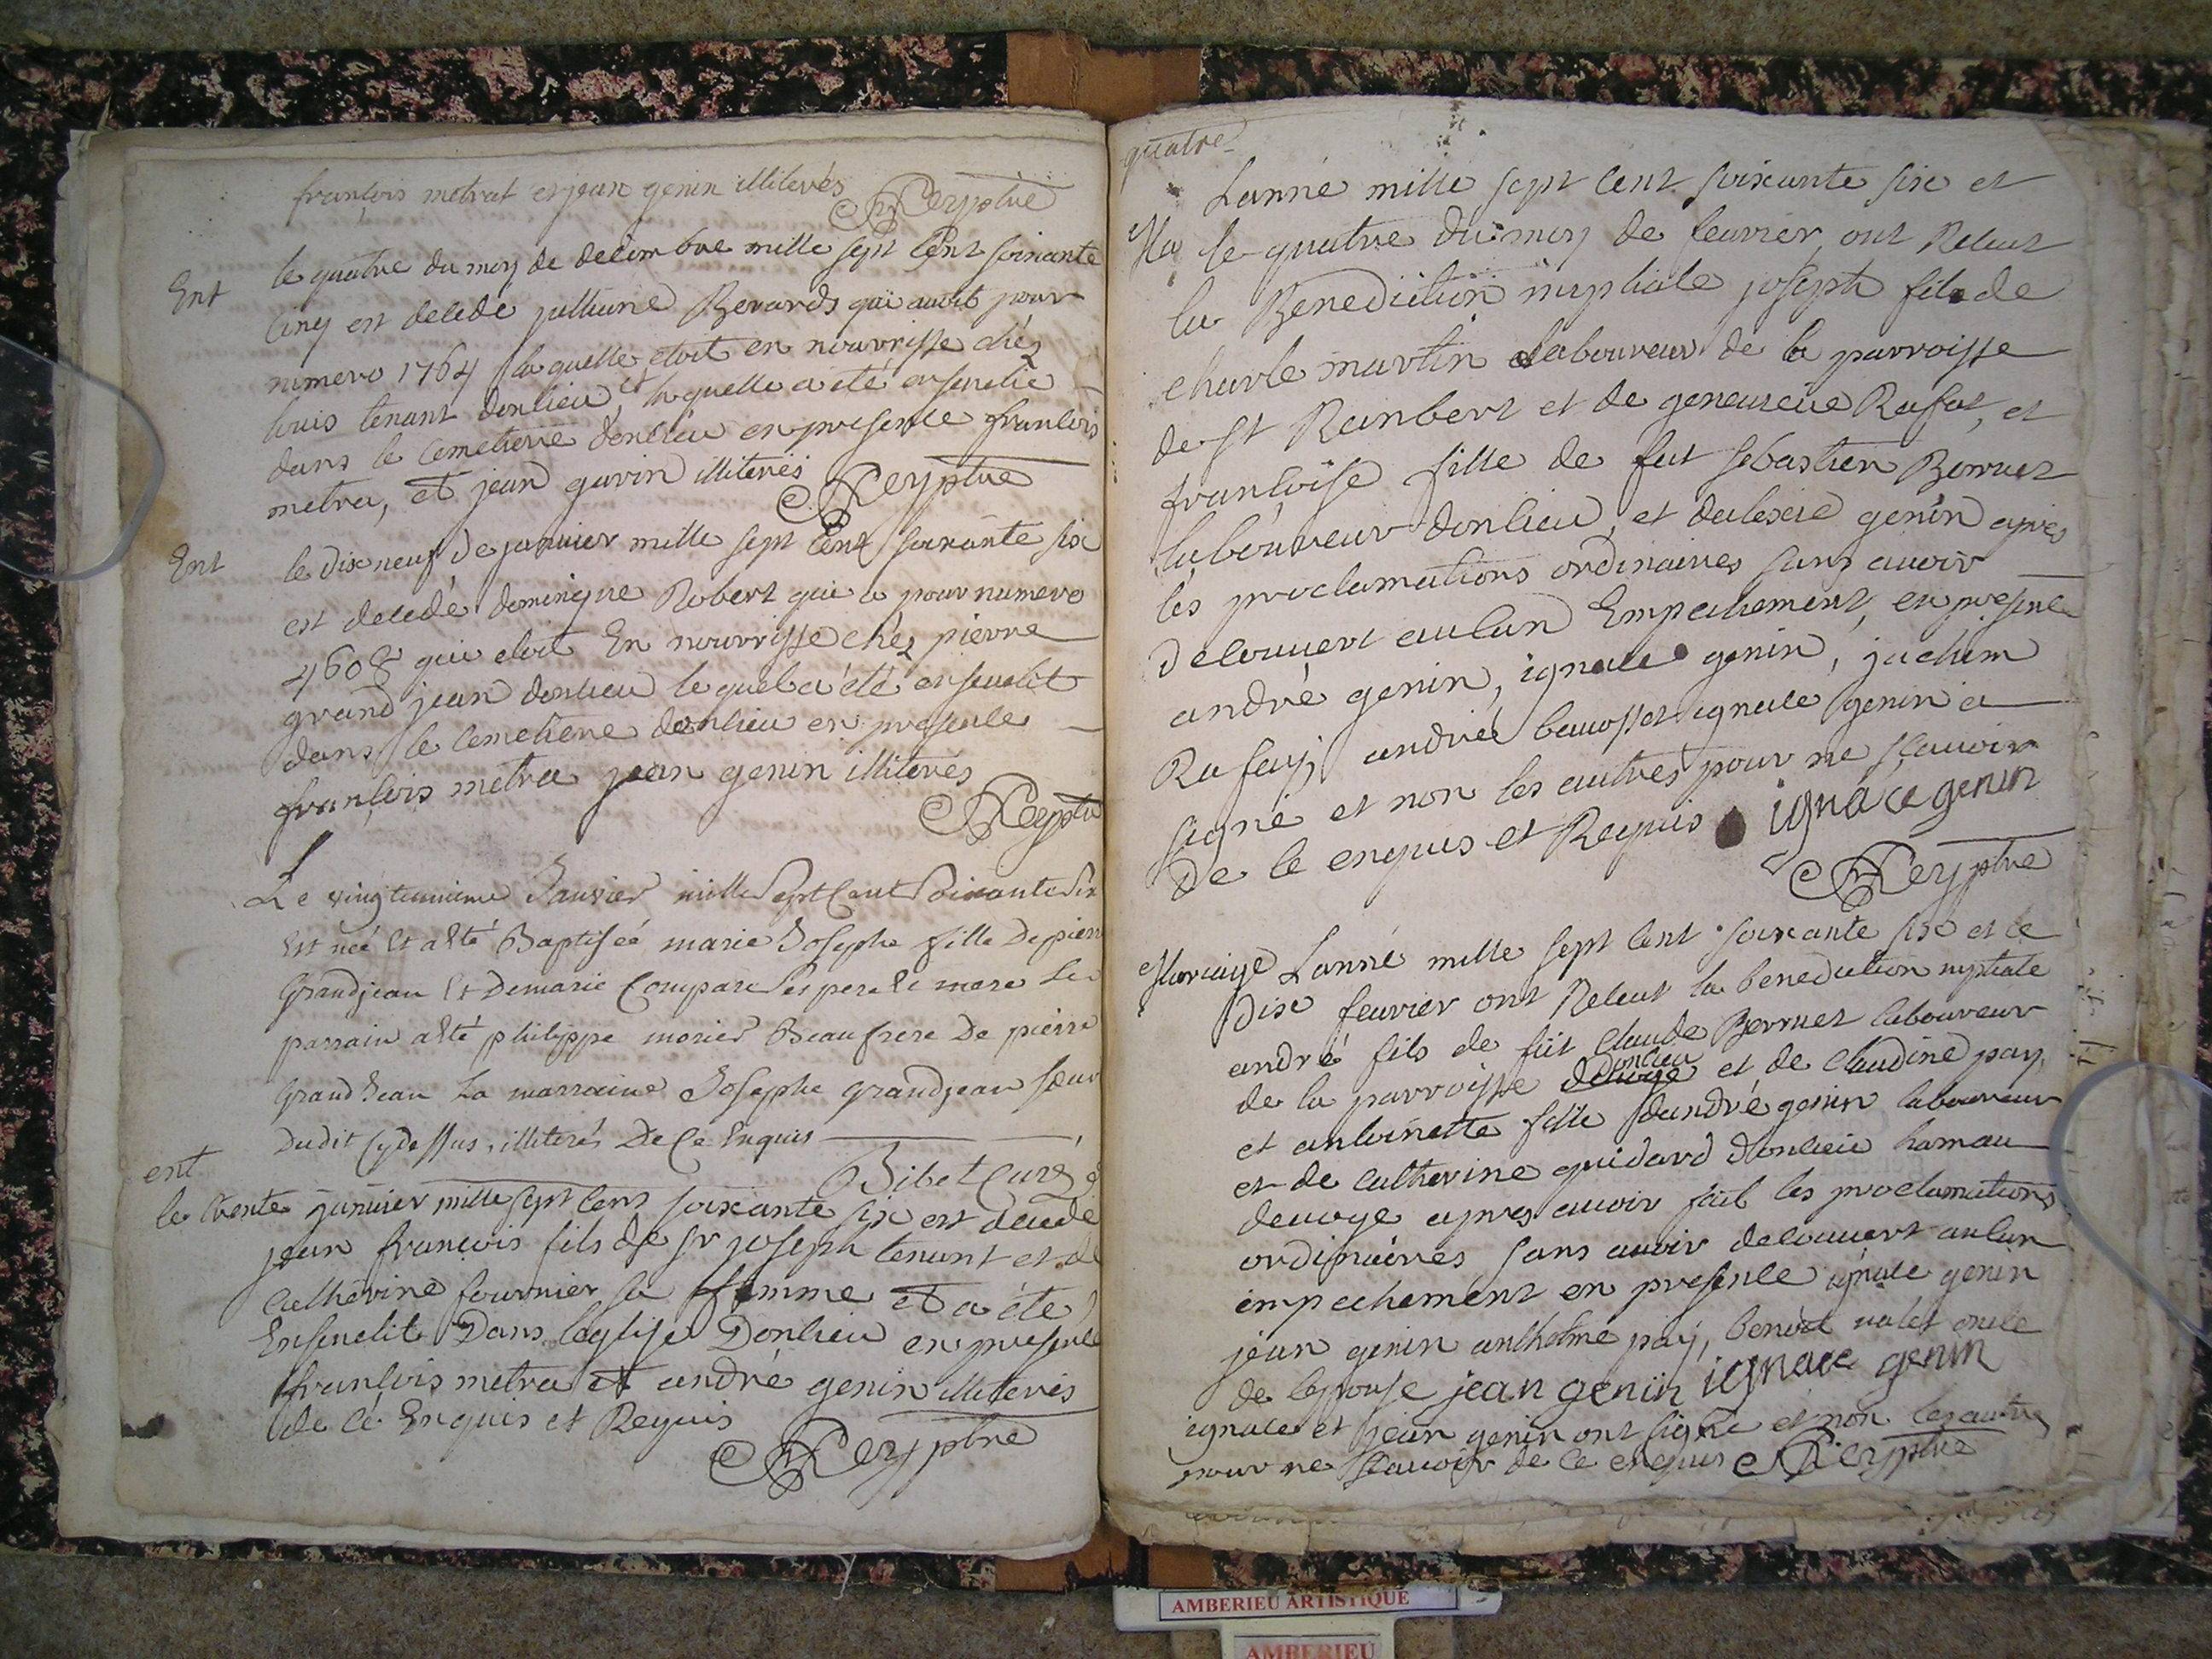 françois metrat et jean genin illiterés
Rey ptre
Ent le quatre du moy de decembre mille sept cent soixante
cinq est decedé jullienne Berards qui avoit pour
numero 1764 laquelle etoit en nourrisse chéz
louis tenant donlieu et laquelle a été ensevelie
dans le cemetiere donlieu en presence francois
metra, et jean garin illiterés Rey ptre
Ent le dix neuf de janvier mille sept cent soixante six
est decedé dominique Robert qui a pour numero
4608 qui etoit En nourrisse chéz pierre
grand jean donlieu lequel a été ensevelit
dans le cemetiere donlieu en presence
françois metra jean genin illiterés
Rey ptre
Le vingtunieme Janvier mille Sept Cent Soixante Six
Est née Et a Eté Baptisée marie Josephe fille De pierre
Grandjean Et De marie Compare Ses pere Et mere Le
parrain a Eté philippe morier Beaufrere De pierre
Grand Jean La marraine Josephe grandjean sœur
Dudit Cy Dessus, illiterés De Ce Enquis
Bibet Curé
ent
le trente janvier mille sept cent soixante six est decedé
jean francois fils de sr joseph tenant et de
catherine fournier sa femme et a été
Ensevelit Dans leglise Donlieu en presence
françois metra et andré genin illiterés
de ce Enquis et Requis
Rey ptre
quatre
Lanné mille sept cent soixante six et
Ma le quatre du moy de fevrier ont Recut
la Benediction nuptiale joseph fils de
charle martin laboureur de la parroisse
de st Rambert et de genevieve Rafat, et
françoise fille de fut sebastien Borruet
laboureur donlieu, et dalexie genin apres
les proclamations ordinaires sans avoir
decouvert aucun Empechement, en presence
andré genin, ignace genin, jachim
Rafay, andrée bavosset ignace genin a
signé et non les autres pour ne scavoir
De ce enquis et Requis ignace genin
Rey ptre
Mariage Lanné mille sept cent soixante six et le
Dix fevrier ont Recut la benediction nuptiale
andré fils de fut Claude Berruet laboureur
donlieu
de la parroisse devoge et de Claudine pay,
et antoinette fille dandré genin laboureur
et de catherine guidard donlieu hamau
devoge apres avoir fait les proclamations
ordinaires sans avoir decouvert aucun
empechement en presence ignace genin
jean genin anthelme pay, benoit valet oncle
de lepouse jean genin ignace genin
ignace et jean genin ont signé et non les autres
pour ne scavoir de ce enquis Rey ptre
AMBERIEU ARTISTIQUE
AMBERIEU